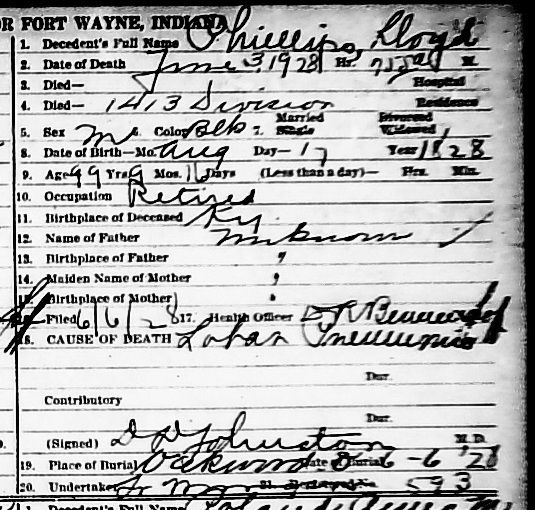 OR FORT WAYNE, INDIANA
1. Decedent's Full Name Phillips, Lloyd
2. Date of Death June 3, 1928 Hr. M.
3. Died— Hospital
4. Died— 1413 Division Residence
Married Divorced
5. Sex M 6. Color Blk 7. Single Widowed
8. Date of Birth—Mo. Aug Day— 17 Year 1828
9. Age 99 Yrs 9 Mos. 16 Days (Less than a day)— Hrs. Min.
10. Occupation Retired
11. Birthplace of Deceased Ky
12. Name of Father Unknown
13. Birthplace of Father "
14. Maiden Name of Mother "
15. Birthplace of Mother "
16. Filed 6/6/28 17. Health Officer
18. CAUSE OF DEATH Lobar Pneumonia
Dur.
Contributory
Dur.
(Signed) D D Johnston M. D.
19. Place of Burial Oakwood Date of Burial 6-6 '28
20. Undertaker 593
1. Decedent's Full Name